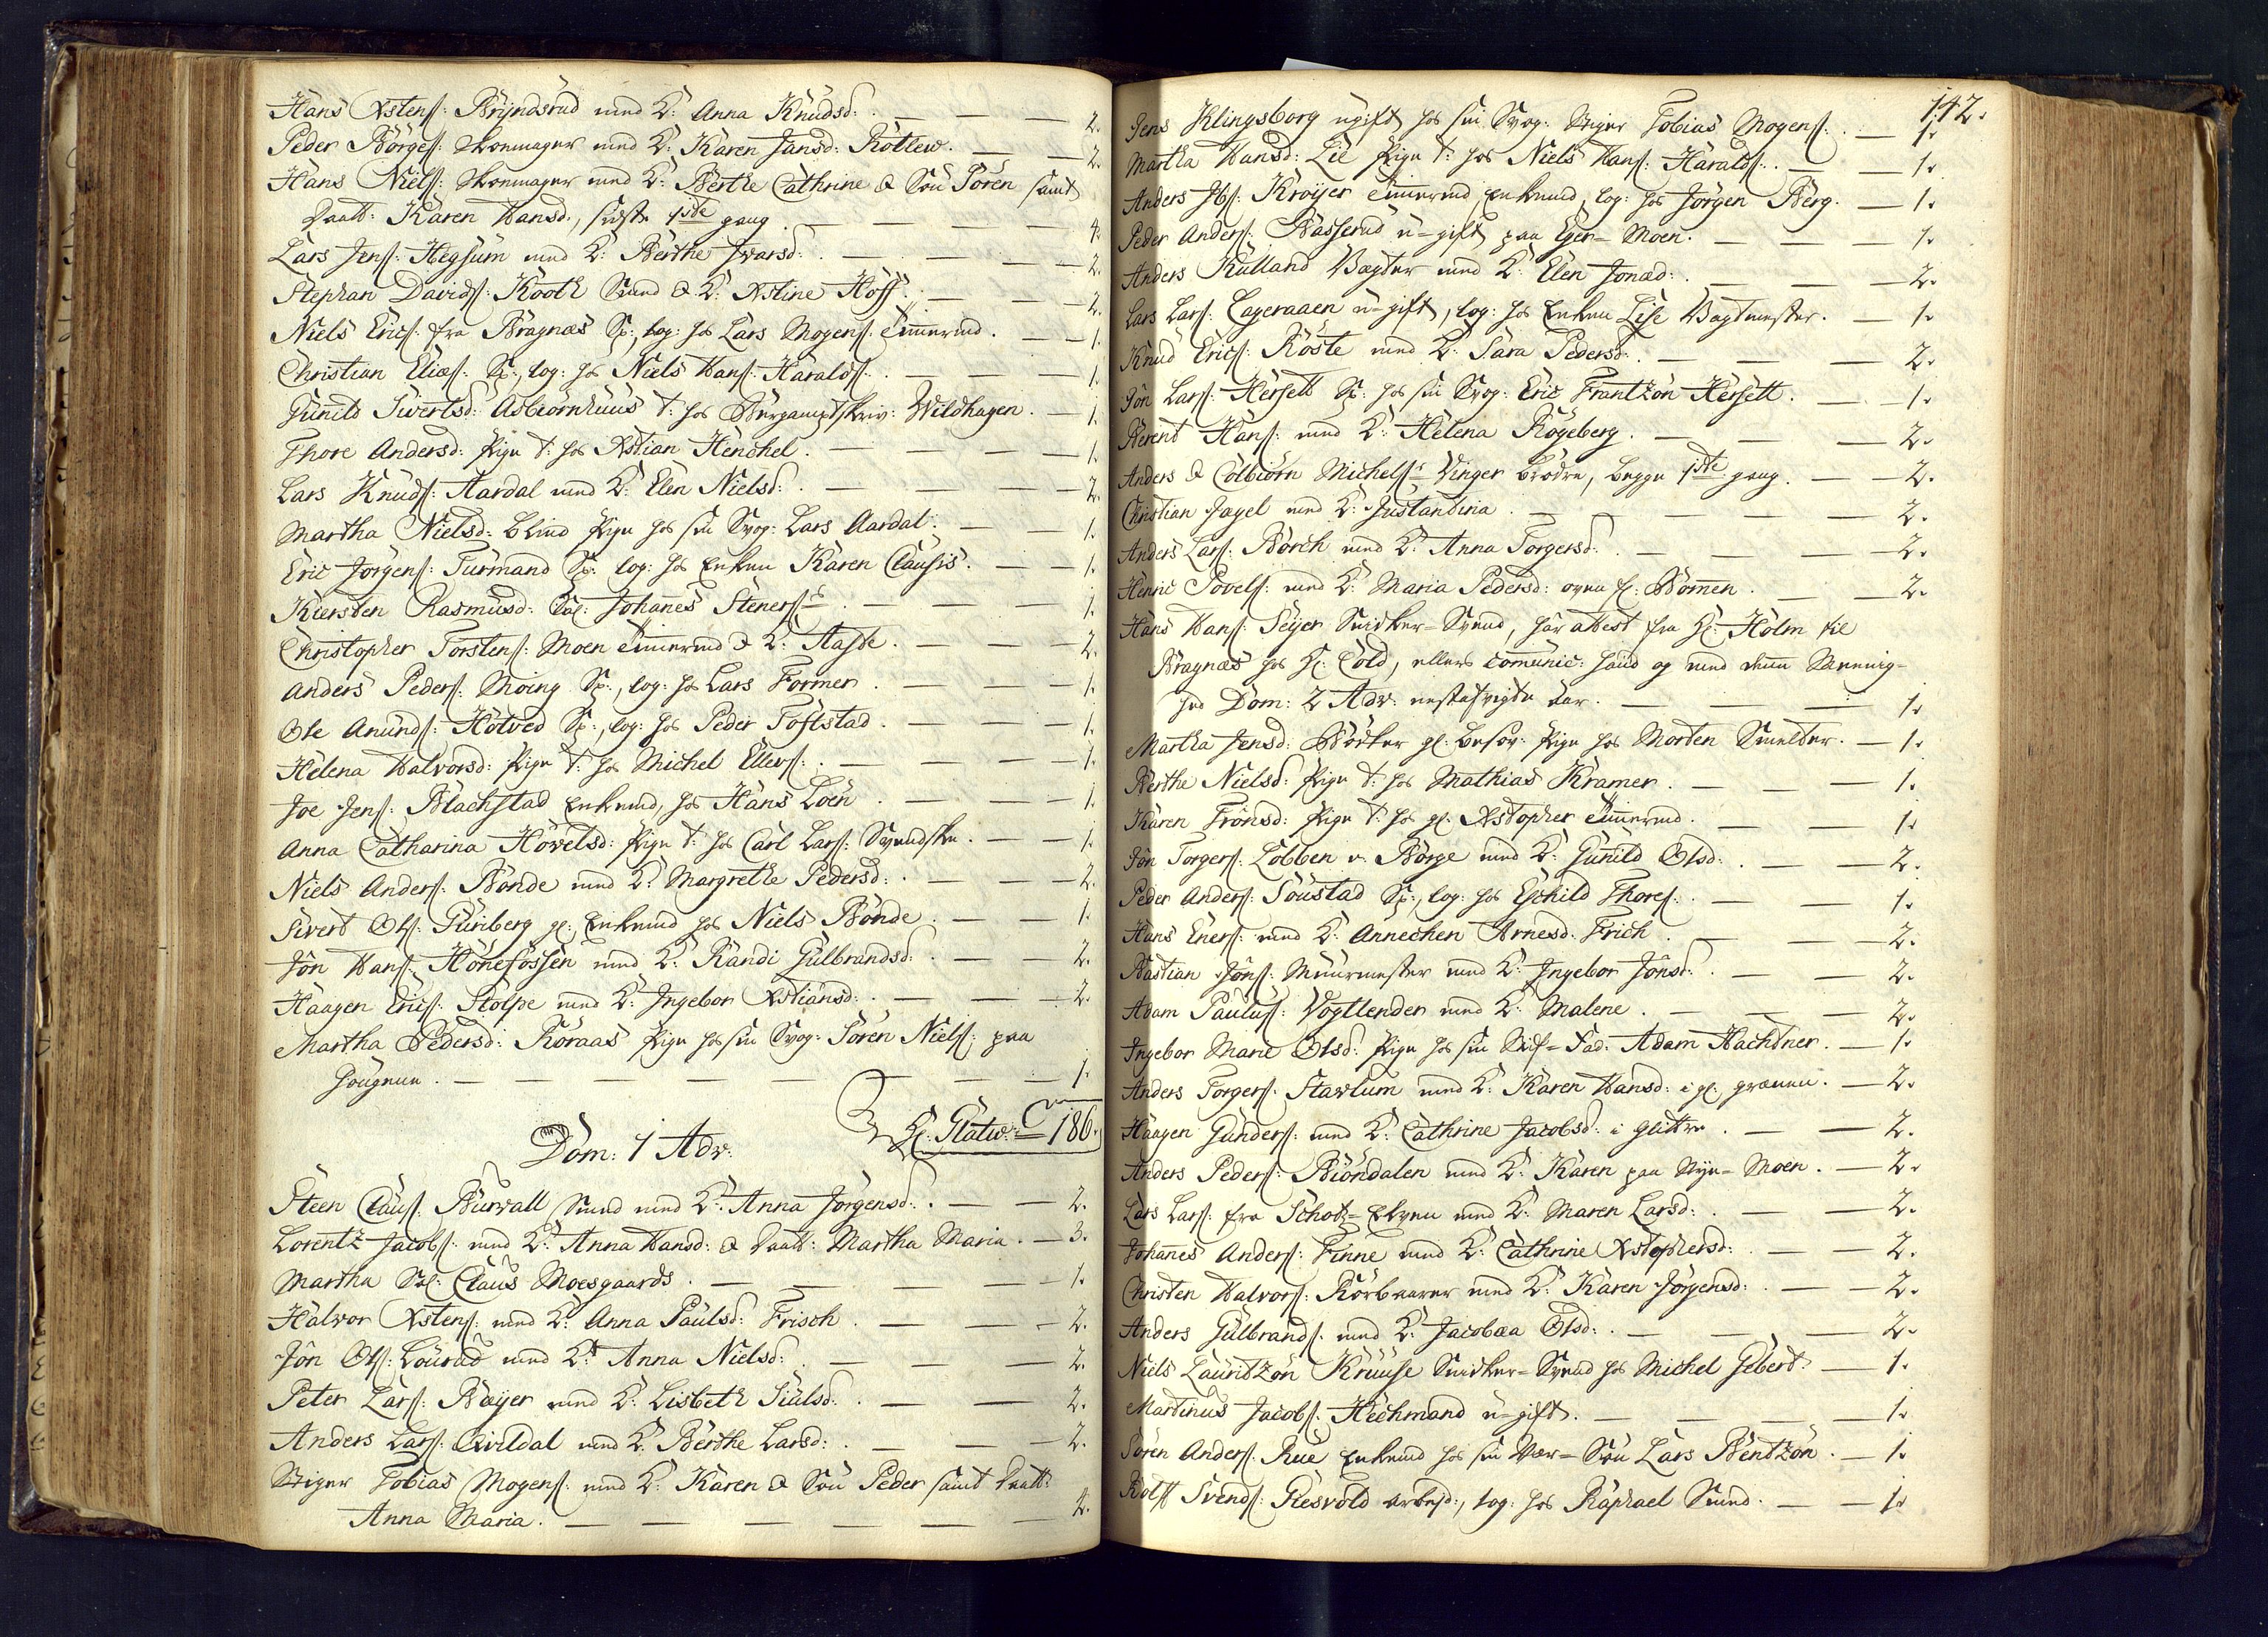 Hans Xstens: Bryndsrud med K: Anna Knudsd: . — — — 2.
Peder Börges: Skoemager med K: Karen Jansd: Rotter. — — 2.
Hans Niels: Skoemager med K: Berthe Cathrine & Sön Sören samt
Daatt: Karen Hansd., sidste 1ste gang . — — — — 4.
Lars Jens: Hegsum med K: Berthe Ivarsd: . — — — 2.
Stephan Davids: Kooth Smed & K: Xstine Hoff. — — — 2.
Niels Erics: fra Bragnæs Sp:, log: hos Lars Mogens: Tömmermd. — — 1.
Christian Elias: Sp:, log: hos Niels Hans: Haralds: . — — 1.
Gunild Sivertsd: Asbiörnhuus t: hos Bergamptskriv: Wildhagen. — 1.
Thore Andersd: Pige t: hos Xstian Henchel. — — — 1.
Lars Knuds: Aardal med K: Elen Nielsd: . — — — 2.
Martha Nielsd: blind Pige hos sin Svog: Lars Aardal. — — 1.
Eric Jörgens: Furmand Sp: log: hos Enken Karen Clausis. — — 1.
Kiersten Rasmusd: Sal: Johanes Steners: . — — — 1.
Christopher Torstens: Moen Tömmermd & K: Aasse. — — — 2.
Anders Peders: Moing Sp:, log: hos Lars Former . — — — 1.
Ole Anunds: Hotved Sp:, log: hos Peder Toftstad . — — — 1.
Helena Halvorsd: Pige t: hos Michel Ellers: . — — — 1.
Joe Jens: Blachstad Enkemd, hos Hans Loen . — — — 1.
Anna Catharina Hövelsd: Pige t: hos Carl Lars: Svendske. — — 1.
Niels Anders: Bonde med K: Margrethe Pedersd: . — — — 2.
Sivert Ols: Guriberg gl: Enkemd hos Niels Bonde . — — 1.
Jön Hans: Hönefossen med K: Randi Gulbrandsd: . — — 2.
Haagen Erics: Stolpe med K: Ingebor Xstiansd: . — — 2.
Martha Pedersd: Röraas Pige hos sin Svog: Sören Niels: paa
Hougnen. — — — — — — — 1.
Hr: Glatw: 186.
Dom: 1 Adv.
Steen Claus: Burvall Smed med K: Anna Jörgensd: . — — 2.
Lorentz Jacobs: med K: Anna Hansd: & Daatt: Martha Maria. — 3.
Martha Sal: Claus Moesgaards . — — — — 1.
Halvor Xstens: med K: Anna Paulsd: Frisch . — — — 2.
Jön Ols: Lourud med K: Anna Nielsd: . — — — 2.
Peter Lars: Bæyer med K: Lisbeth Siulsd: . — — — 2.
Anders Lars: Qvildal med K: Berthe Larsd: . — — — 2.
Stiger Tobias Mogens: med K: Karen & Sön Peder samt Daatt:
Anna Maria. — — — — — — 4.
142.
Jens Klingsborg ugift hos sin Svog: Stiger Tobias Mogens: . — 1.
Martha Hansd: Lie Pige t: hos Niels Hans: Haralds: . — — 1.
Anders Ibs: Kröyer Tömmermd, Enkemd, log: hos Jörgen Berg. — 1.
Peder Anders: Basserud u-gift paa Eger-Moen. — — — 1.
Anders Rulland Vægter med K: Elen Jonæd: . — — — 2.
Lars Lars: Lageraaen u-gift, log: hos Enken Lise Vagtmester. — 1.
Knud Erics: Röste med K: Sara Pedersd: . — — — 2.
Jön Lars: Hersett Sp: hos sin Svog: Eric Frantzön Hersett. — — 1.
Berent Hans: med K: Helena Rögeberg. — — — 2.
Anders & Colbiörn Michels: Vinger brödre, begge 1ste gang. — — 2.
Christian Jagel med K: Justandina . — — — — 2.
Anders Lars: Borch med K: Anna Torgersd: . — — — 2.
Henric Povels: med K: Maria Pedersd: oven f: Bommen . — — 2.
Hans Hans: Seyer Snidker-Svend, har attest fra Hr: Holm til
Bragnæs hos Hr: Cold, ellers comunic: hand og med denne Menig-
hed Dom: 2 Adv: nestafvigte aar. — — — 1.
Martha Jensd: Bödker gl: besov: Pige hos Morten Smelter. — 1.
Berthe Nielsd: Pige t: hos Mathias Kramer. — — — 1.
Karen Fronsd: Pige t: hos gl: Xstopher Tömmermd. — — 1.
Jön Torgers: Lobben v: Börge med K: Gunild Olsd: . — — 2.
Peder Anders: Soustad Sp:, log: hos Eschild Thores: . — — 1.
Hans Eners: med K: Annechen Arnesd: Frich . — — — 2.
Bastian Jöns: Muurmester med K: Ingebor Jönsd: . — — 2.
Adam Paulus: Vogtlender med K: Malene . — — — 2.
Ingebor Marie Olsd: Pige hos sin Stif-Fad: Adam Hachtner. — 1.
Anders Torgers: Stavlum med K: Karen Hansd: i gl: grænen. — 2.
Haagen Gunders: med K: Cathrine Jacobsd: i glittre . — — 2.
Anders Peders: Biöndalen med K: Karen paa Nye-Moen. — 2.
Lars Lars: fra Schotz-Elven med K: Maren Larsd: . — — 2.
Johanes Anders: Finne med K: Cathrine Xstophersd: . — — 2.
Christen Halvors: Körbærer med K: Karen Jörgensd: . — — 2.
Anders Gulbrands: med K: Jacobæa Olsd: . — — — 2.
Niels Lauritzön Kruuse Snidker-Svend hos Michel Gebert. — 1.
Martinus Jacobs: Hechmand u-gift. — — — — 1.
Sören Anders: Rue Enkemd hos sin Vær-Sön Lars Bentzön . — 1.
Rolff Svends: Resvold arbejd:, log: hos Raphael Smed. — — 1.